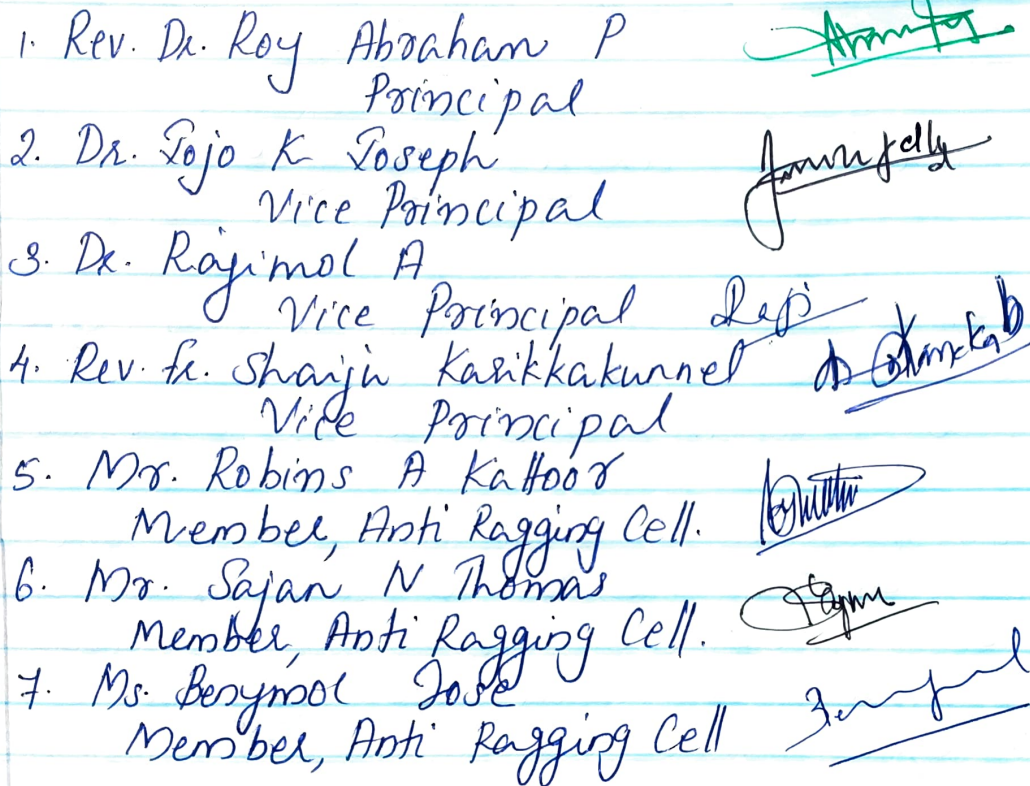 1. Rev. Dr. Roy Abraham P
Principal
2. Dr. Jojo K Joseph
Vice Principal
3. Dr. Rajimol A
Vice Principal Raji
4. Rev. Fr. Shaiju Karikkakunnel
Vice Principal
5. Mr. Robins A Kattoor
Member, Anti Ragging Cell.
6. Mr. Sajan N Thomas
Member, Anti Ragging Cell.
7. Ms. Benymol Jose
Member, Anti Ragging Cell